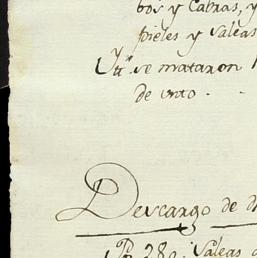 bos y Cabras, y
pieles y Saleas
Ytt. se mataron
de unto.
Descargo de d
Pr. 280. Saleas